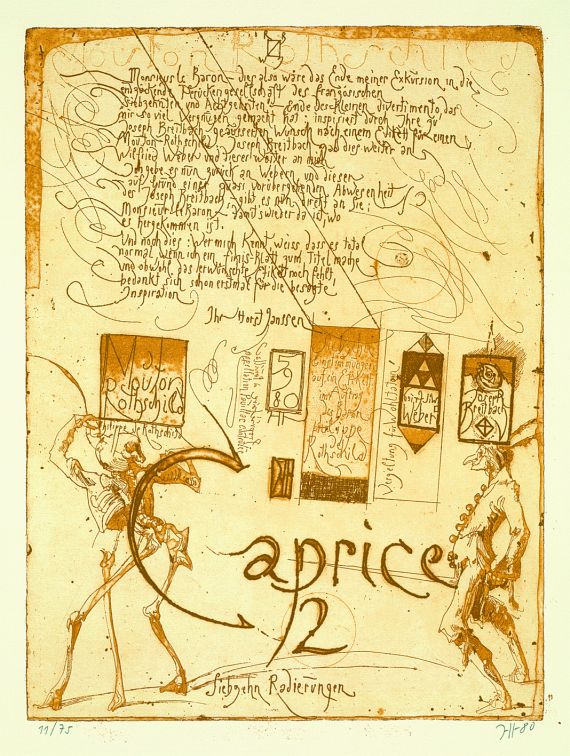 Mouton Rothschild
Monsieur le Baron – dies also wäre das Ende meiner Exkursion in die
entzückende Perückengesellschaft des französischen
Siebzehnten und Achtzehnten – Ende des kleinen divertimento, das
mir so viel Vergnügen gemacht hat; inspiriert durch Ihre zu
Joseph Breitbach geäusserten Wunsch nach einem Etikett für einen
Mouton-Rothschild. Joseph Breitbach gab dies weiter an
Wilfried Weber und dieser weiter an mich.
Ich gebe es nun zurück an Webern und dieser
auf Grund einer quasi vorübergehenden Abwesenheit
des Joseph Breitbach, gibt es nun direkt an Sie,
Monsieur le Baron, damit's wieder da ist wo
es hergekommen ist.
Und noch dies: Wer mich kennt, weiss dass es total
normal wenn ich ein finis-Blatt zum Titel mache
und obwohl das erwünschte Etikett noch fehlt
bedankt sich schon erstmal für die besagte
Inspiration
Ihr Horst Janssen
Mouton
Rothschild
Philippe de Rothschild
5
9
80
Rothschild
Vergeltung für Wohltaten
Wilfried
Weber
Joseph
Breitbach
Caprice
2
Siebzehn Radierungen
11/75
JH 80